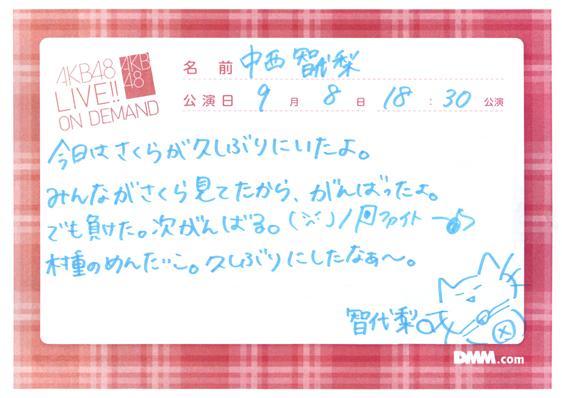 AKB48
LIVE!!
ON DEMAND
AKB
48
名前 中西智代梨
公演日 9月8日 18:30公演
今日はさくらが久しぶりにいたよ。
みんながさくら見てたから、がんばったよ。
でも負けた。次がんばる。
ファイト
村重のめんたいこ。久しぶりにしたなぁ〜。
智代梨
DMM.com